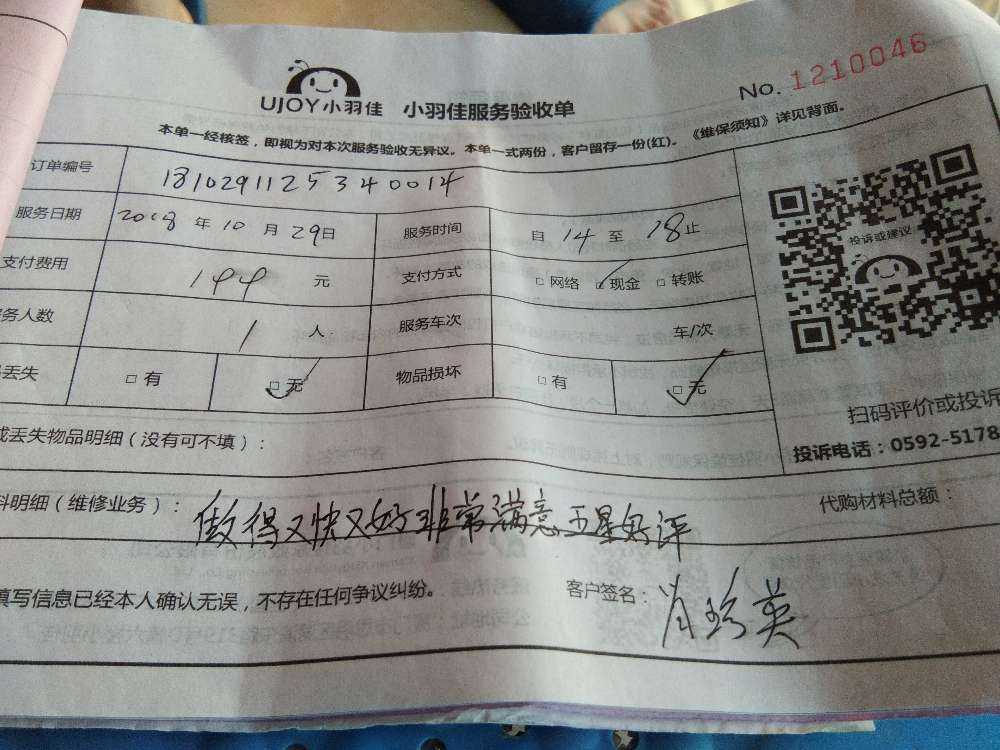 No. 1210046
UJOY小羽佳 小羽佳服务验收单
本单一经核签，即视为对本次服务验收无异议。本单一式两份，客户留存一份(红)。《维保须知》详见背面。
订单编号 181029112534 0014
服务日期 2018 年 10 月 29 日 服务时间 自 14 至 18 止
支付费用 144 元 支付方式 □ 网络 □ 现金 □ 转账
务人数 1 人 服务车次 车/次
丢失 □ 有 □ 无 物品损坏 □ 有 □ 无
投诉或建议
扫码评价或投诉
投诉电话：0592-5178
或丢失物品明细（没有可不填）：
料明细（维修业务）： 做得又快又好非常满意五星好评 代购材料总额：
填写信息已经本人确认无误，不存在任何争议纠纷。 客户签名： 肖珍英